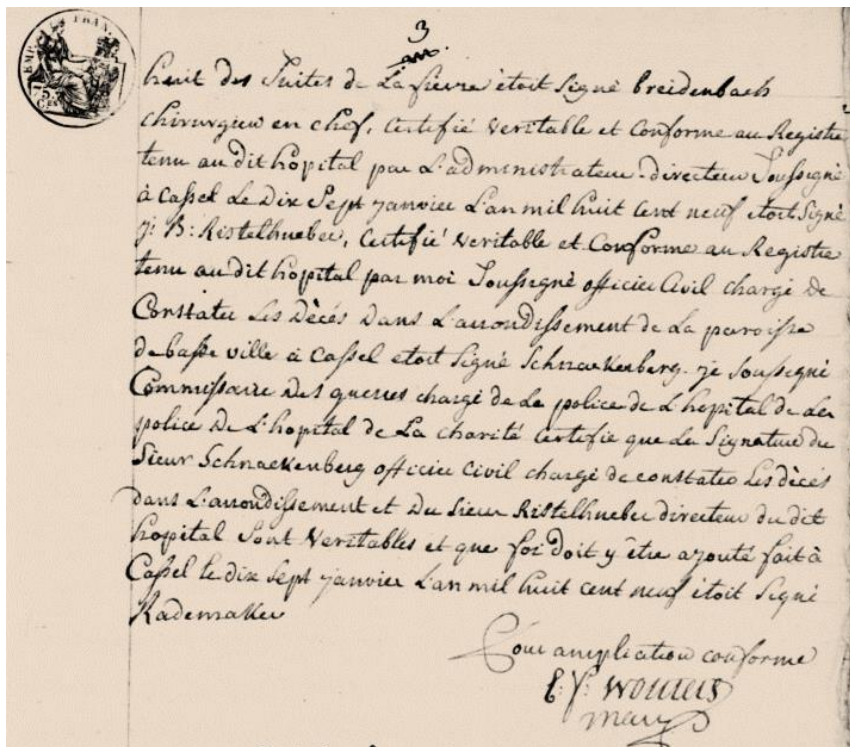 EMP. FRAN.
3
huit des Suites de La fievre étoit Signé breidenbach
chirurgien en chef, Certifié veritable et Conforme au Registre
tenu au dit hôpital par L'administrateur-directeur Soussigné
à Cassel Le Dix Sept janvier L'an mil huit Cent neuf étoit Signé
J: B: Ristelhueber, Certifié veritable et Conforme au Registre
tenu au dit hopital par moi Soussigné officier Civil chargé de
Constater Les Décés Dans L'arrondissement de La paroisse
de basse ville à Cassel etoit Signé Schnackenberg. je Soussigné
Commissaire Des guerres chargé de La police de L'hopital de La
police De L'hopital de La charité Certifie que La Signature du
Sieur Schnackenberg officier Civil chargé de constater Les décés
dans L'arrondissement et Du Sieur Ristelhueber directeur du dit
hopital Sont Veritables et que foi Doit y être ajouté fait à
Cassel le dix Sept janvier L'an mil huit cent neuf étoit Signé
Rademaker
Pour ampliation conforme
Wouters